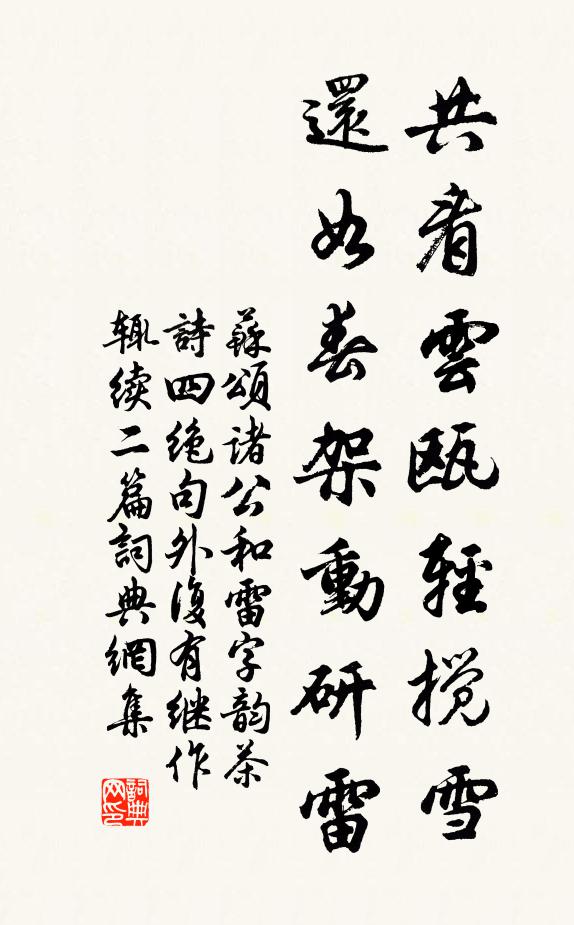 共看雲瓯輕搅雪
還如春架動研雷
蘇頌諸公和雷字韵茶
詩四绝句外復有继作
辄续二篇詞典網集
詞典网印